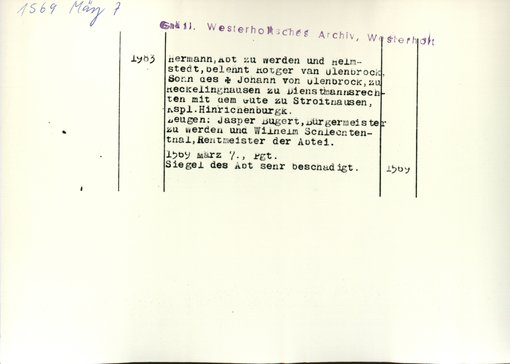 1569 März 7
Gräfl. Westerholtsches Archiv, Westerholt
1983
Hermann,Abt zu Werden und Helm-
stedt,belehnt Rotger van Ulenbrock,
Sohn des ✠ Johann von Ulenbrock,zu
Reckelinghausen zu Dienstmannsrech-
ten mit dem Gute zu Stroithausen,
Kspl.Hinrichenburgk.
Zeugen: Jasper Bugert,Bürgermeister
zu Werden und Wilhelm Schlechten-
thal,Rentmeister der Abtei.
1569 März 7., Pgt.
Siegel des Abt sehr beschädigt.
1569